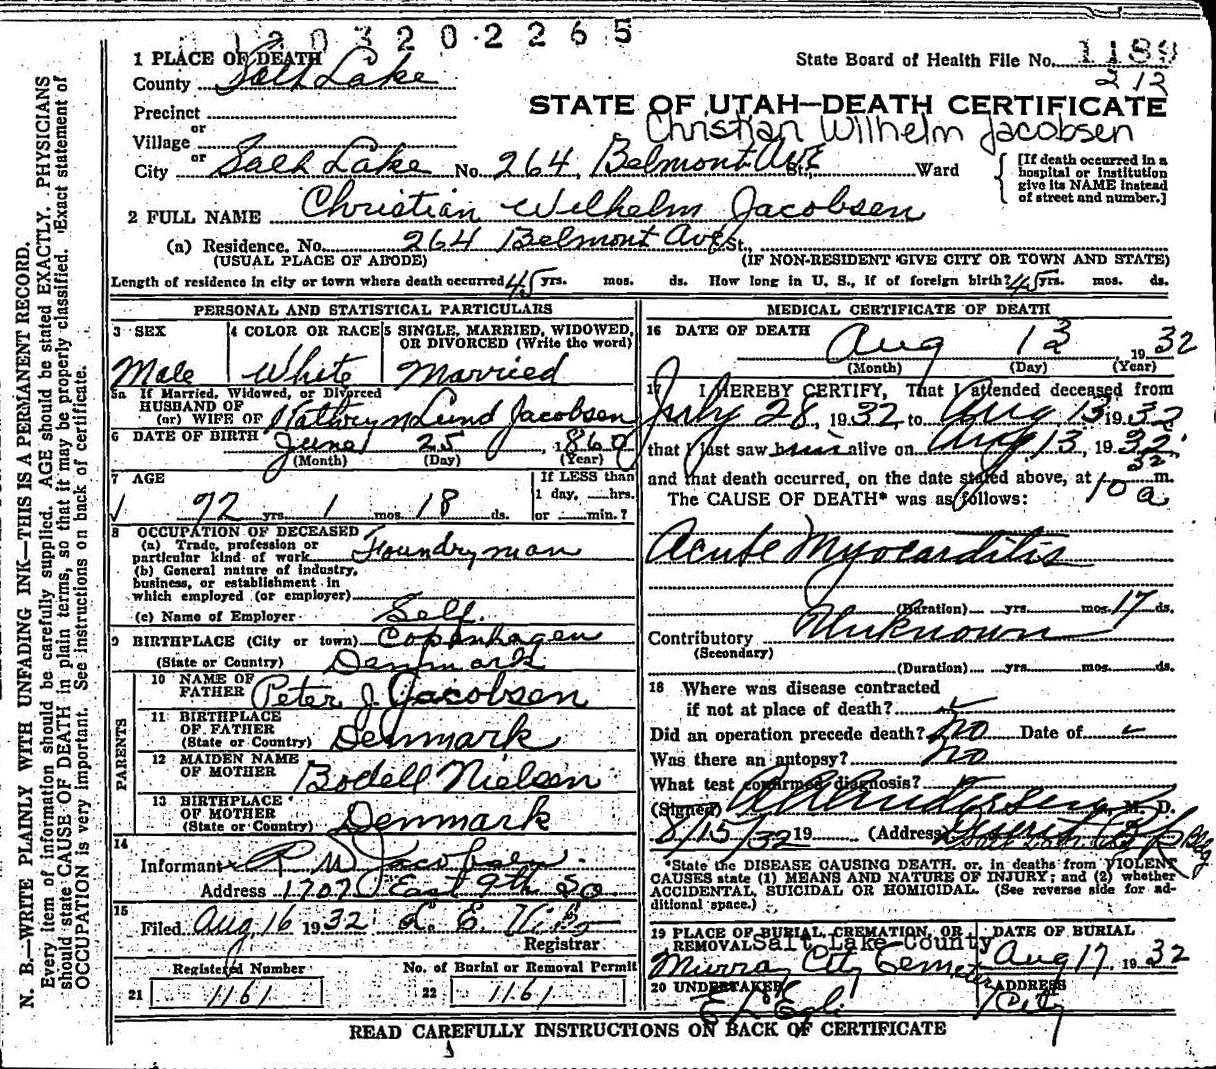 1 2 0 3 2 0 2 2 6 5
1 PLACE OF DEATH
County Salt Lake
State Board of Health File No. 1189
212
Precinct
or
STATE OF UTAH—DEATH CERTIFICATE
Christian Wilhelm Jacobsen
Village
or
City Salt Lake No. 264 Belmont Ave St., Ward
[If death occurred in a hospital or institution give its NAME instead of street and number.]
2 FULL NAME Christian Wilhelm Jacobsen
(a) Residence. No. 264 Belmont Ave St.,
(USUAL PLACE OF ABODE) (IF NON-RESIDENT GIVE CITY OR TOWN AND STATE)
Length of residence in city or town where death occurred 45 yrs. mos. ds. How long in U. S., if of foreign birth? 45 yrs. mos. ds.
PERSONAL AND STATISTICAL PARTICULARS
3 SEX
Male
4 COLOR OR RACE
White
5 SINGLE, MARRIED, WIDOWED,
OR DIVORCED (Write the word)
Married
5a If Married, Widowed, or Divorced
HUSBAND OF
(or) WIFE OF Kathryn Lund Jacobsen
6 DATE OF BIRTH June 25, 1860
(Month) (Day) (Year)
7 AGE
72 yrs. 1 mos. 18 ds.
If LESS than
1 day, hrs.
or min.?
8 OCCUPATION OF DECEASED
(a) Trade, profession or
particular kind of work Foundryman
(b) General nature of industry,
business, or establishment in
which employed (or employer)
(c) Name of Employer Self.
9 BIRTHPLACE (City or town) Copenhagen
(State or Country) Denmark
PARENTS
10 NAME OF
FATHER Peter J. Jacobsen
11 BIRTHPLACE
OF FATHER
(State or Country) Denmark
12 MAIDEN NAME
OF MOTHER Bodell Nielsen
13 BIRTHPLACE
OF MOTHER
(State or Country) Denmark
14
Informant R W Jacobsen
Address 1707 East 9th So
15
Filed Aug 16 1932 L. E.
Registrar
Registered Number
21 1161
No. of Burial or Removal Permit
22 1161
MEDICAL CERTIFICATE OF DEATH
16 DATE OF DEATH
Aug 13 1932
(Month) (Day) (Year)
17 I HEREBY CERTIFY, That I attended deceased from
July 28, 1932 to Aug 13 1932
that I last saw him alive on Aug 13, 1932
and that death occurred, on the date stated above, at 10 32 a m.
The CAUSE OF DEATH* was as follows:
Acute Myocarditis
(Duration) yrs. mos. 17 ds.
Contributory Unknown
(Secondary)
(Duration) yrs. mos. ds.
18 Where was disease contracted
if not at place of death?
Did an operation precede death? No Date of
Was there an autopsy? No
What test confirmed diagnosis?
(Signed) M. D.
8/15/32 19 (Address) Bldg
*State the DISEASE CAUSING DEATH, or, in deaths from VIOLENT
CAUSES state (1) MEANS AND NATURE OF INJURY; and (2) whether
ACCIDENTAL, SUICIDAL OR HOMICIDAL. (See reverse side for ad-
ditional space.)
19 PLACE OF BURIAL, CREMATION, OR
REMOVAL Salt Lake County
Murray City Cemetery
DATE OF BURIAL
Aug 17, 1932
20 UNDERTAKER
E L Egli
ADDRESS
City
READ CAREFULLY INSTRUCTIONS ON BACK OF CERTIFICATE
N. B.—WRITE PLAINLY WITH UNFADING INK—THIS IS A PERMANENT RECORD.
Every item of information should be carefully supplied. AGE should be stated EXACTLY. PHYSICIANS
should state CAUSE OF DEATH in plain terms, so that it may be properly classified. Exact statement of
OCCUPATION is very important. See instructions on back of certificate.